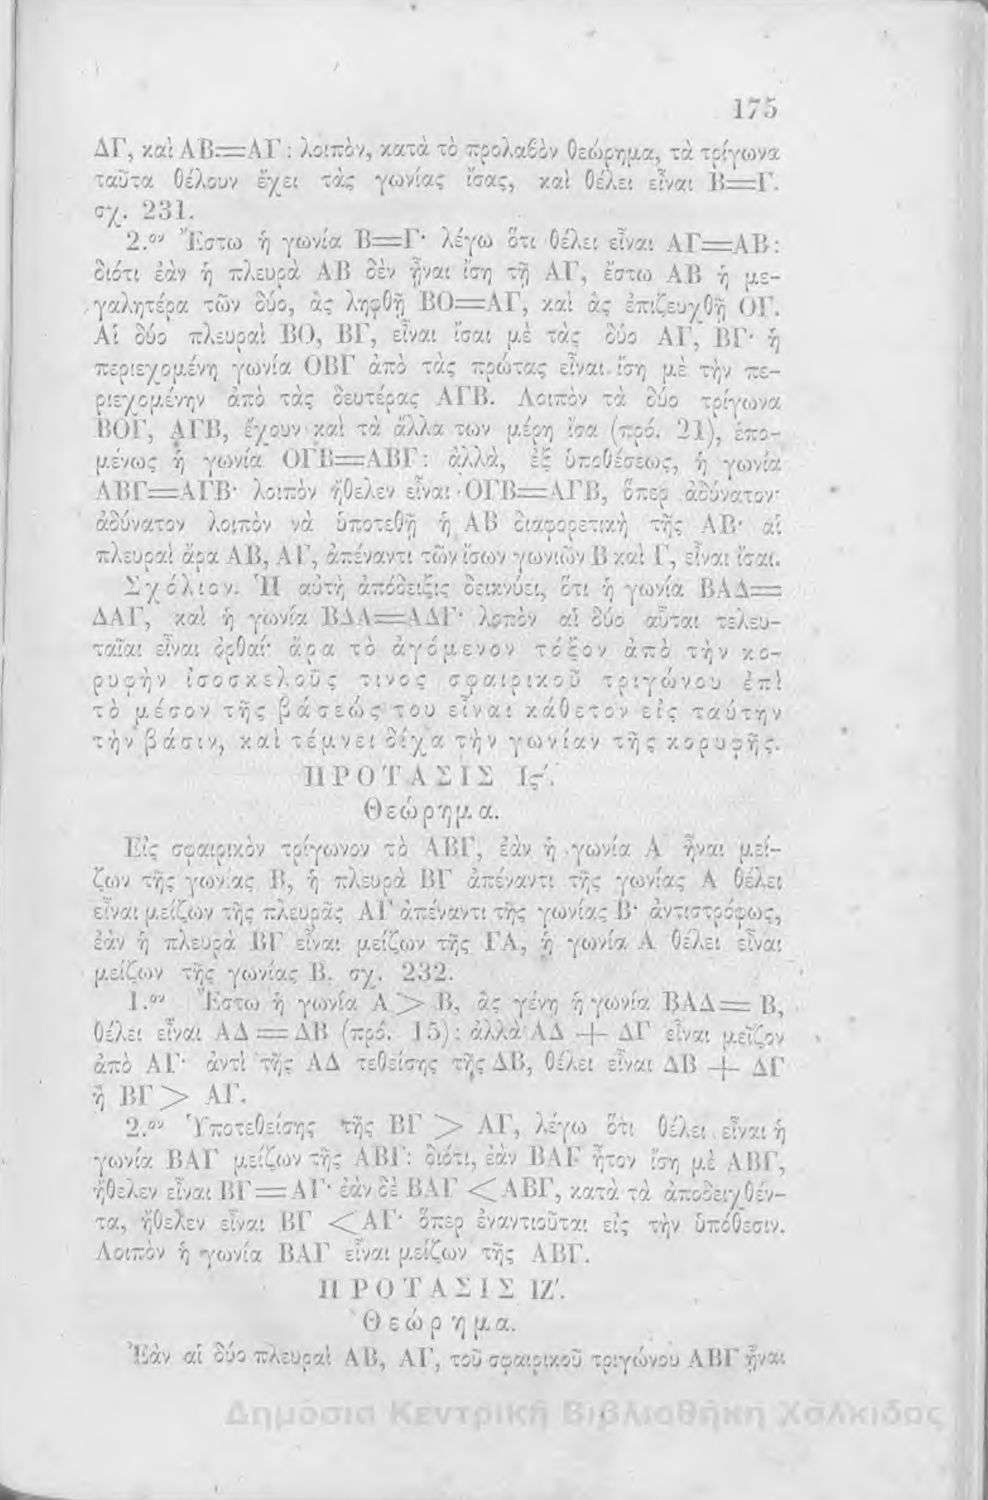 175
ΔΓ, καὶ ΑΒ=ΑΓ : λοιπὸν, κατὰ τὸ προλαβὸν θεώρημα, τὰ τρίγωνα
ταῦτα θέλουν ἔχει τὰς γωνίας ἴσας, καὶ θέλει εἶναι Β=Γ.
σχ. 231.
2.ον Ἔστω ἡ γωνία Β=Γ· λέγω ὅτι θέλει εἶναι ΑΓ=ΑΒ:
διότι ἐὰν ἡ πλευρὰ ΑΒ δὲν ᾖναι ἴση τῇ ΑΓ, ἔστω ΑΒ ἡ με-
γαλητέρα τῶν δύο, ἂς ληφθῇ ΒΟ=ΑΓ, καὶ ἂς ἐπιζευχθῇ ΟΓ.
Αἱ δύο πλευραὶ ΒΟ, ΒΓ, εἶναι ἴσαι μὲ τὰς δύο ΑΓ, ΒΓ· ἡ
περιεχομένη γωνία ΟΒΓ ἀπὸ τὰς πρώτας εἶναι ἴση μὲ τὴν πε-
ριεχομένην ἀπὸ τὰς δευτέρας ΑΓΒ. Λοιπὸν τὰ δύο τρίγωνα
ΒΟΓ, ΑΓΒ, ἔχουν καὶ τὰ ἄλλα των μέρη ἴσα (πρό. 21), ἑπο-
μένως ἡ γωνία ΟΓΒ=ΑΒΓ : ἀλλὰ, ἐξ ὑποθέσεως, ἡ γωνία
ΑΒΓ=ΑΓΒ· λοιπὸν ἤθελεν εἶναι ΟΓΒ=ΑΓΒ, ὅπερ ἀδύνατον·
ἀδύνατον λοιπὸν νὰ ὑποτεθῇ ἡ ΑΒ διαφορετικὴ τῆς ΑΒ· αἱ
πλευραὶ ἄρα ΑΒ, ΑΓ, ἀπέναντι τῶν ἴσων γωνιῶν Β καὶ Γ, εἶναι ἴσαι.
Σχόλιον. Ἡ αὐτὴ ἀπόδειξις δεικνύει, ὅτι ἡ γωνία ΒΑΔ=
ΔΑΓ, καὶ ἡ γωνία ΒΔΑ=ΑΔΓ· λοπὸν αἱ δύο αὗται τελευ-
ταῖαι εἶναι ὀρθαί· ἄρα τὸ ἀγόμενον τόξον ἀπὸ τὴν κο-
ρυφὴν ἰσοσκελοῦς τινος σφαιρικοῦ τριγώνου ἐπὶ
τὸ μέσον τῆς βάσεώς του εἶναι κάθετον εἰς ταύτην
τὴν βάσιν, καὶ τέμνει δίχα τὴν γωνίαν τῆς κορυφῆς.
ΠΡΟΤΑΣΙΣ Ιϛ΄.
Θεώρημα.
Εἰς σφαιρικὸν τρίγωνον τὸ ΑΒΓ, ἐὰν ἡ γωνία Α ᾖναι μεί-
ζων τῆς γωνίας Β, ἡ πλευρὰ ΒΓ ἀπέναντι τῆς γωνίας Α θέλει
εἶναι μείζων τῆς πλευρᾶς ΑΓ ἀπέναντι τῆς γωνίας Β· ἀντιστρόφως,
ἐὰν ἡ πλευρὰ ΒΓ εἶναι μείζων τῆς ΓΑ, ἡ γωνία Α θέλει εἶναι
μείζων τῆς γωνίας Β. σχ. 232.
1.ον Ἔστω ἡ γωνία Α > Β, ἂς γένῃ ἡ γωνία ΒΑΔ= Β,
θέλει εἶναι ΑΔ = ΔΒ (πρό. 15) : ἀλλὰ ΑΔ + ΔΓ εἶναι μεῖζον
ἀπὸ ΑΓ· ἀντὶ τῆς ΑΔ τεθείσης τῆς ΔΒ, θέλει εἶναι ΔΒ + ΔΓ
ἢ ΒΓ > ΑΓ.
2.ον Ὑποτεθείσης τῆς ΒΓ > ΑΓ, λέγω ὅτι θέλει εἶναι ἡ
γωνία ΒΑΓ μείζων τῆς ΑΒΓ: διότι, ἐὰν ΒΑΓ ἦτον ἴση μὲ ΑΒΓ,
ἤθελεν εἶναι ΒΓ = ΑΓ· ἐὰν δὲ ΒΑΓ < ΑΒΓ, κατὰ τὰ ἀποδειχθέν-
τα, ἤθελεν εἶναι ΒΓ < ΑΓ· ὅπερ ἐναντιοῦται εἰς τὴν ὑπόθεσιν.
Λοιπὸν ἡ γωνία ΒΑΓ εἶναι μείζων τῆς ΑΒΓ.
ΠΡΟΤΑΣΙΣ ΙΖ΄.
Θεώρημα.
Ἐὰν αἱ δύο πλευραὶ ΑΒ, ΑΓ, τοῦ σφαιρικοῦ τριγώνου ΑΒΓ ᾖναι
Δημόσια Κεντρική Βιβλιοθήκη Χαλκίδας